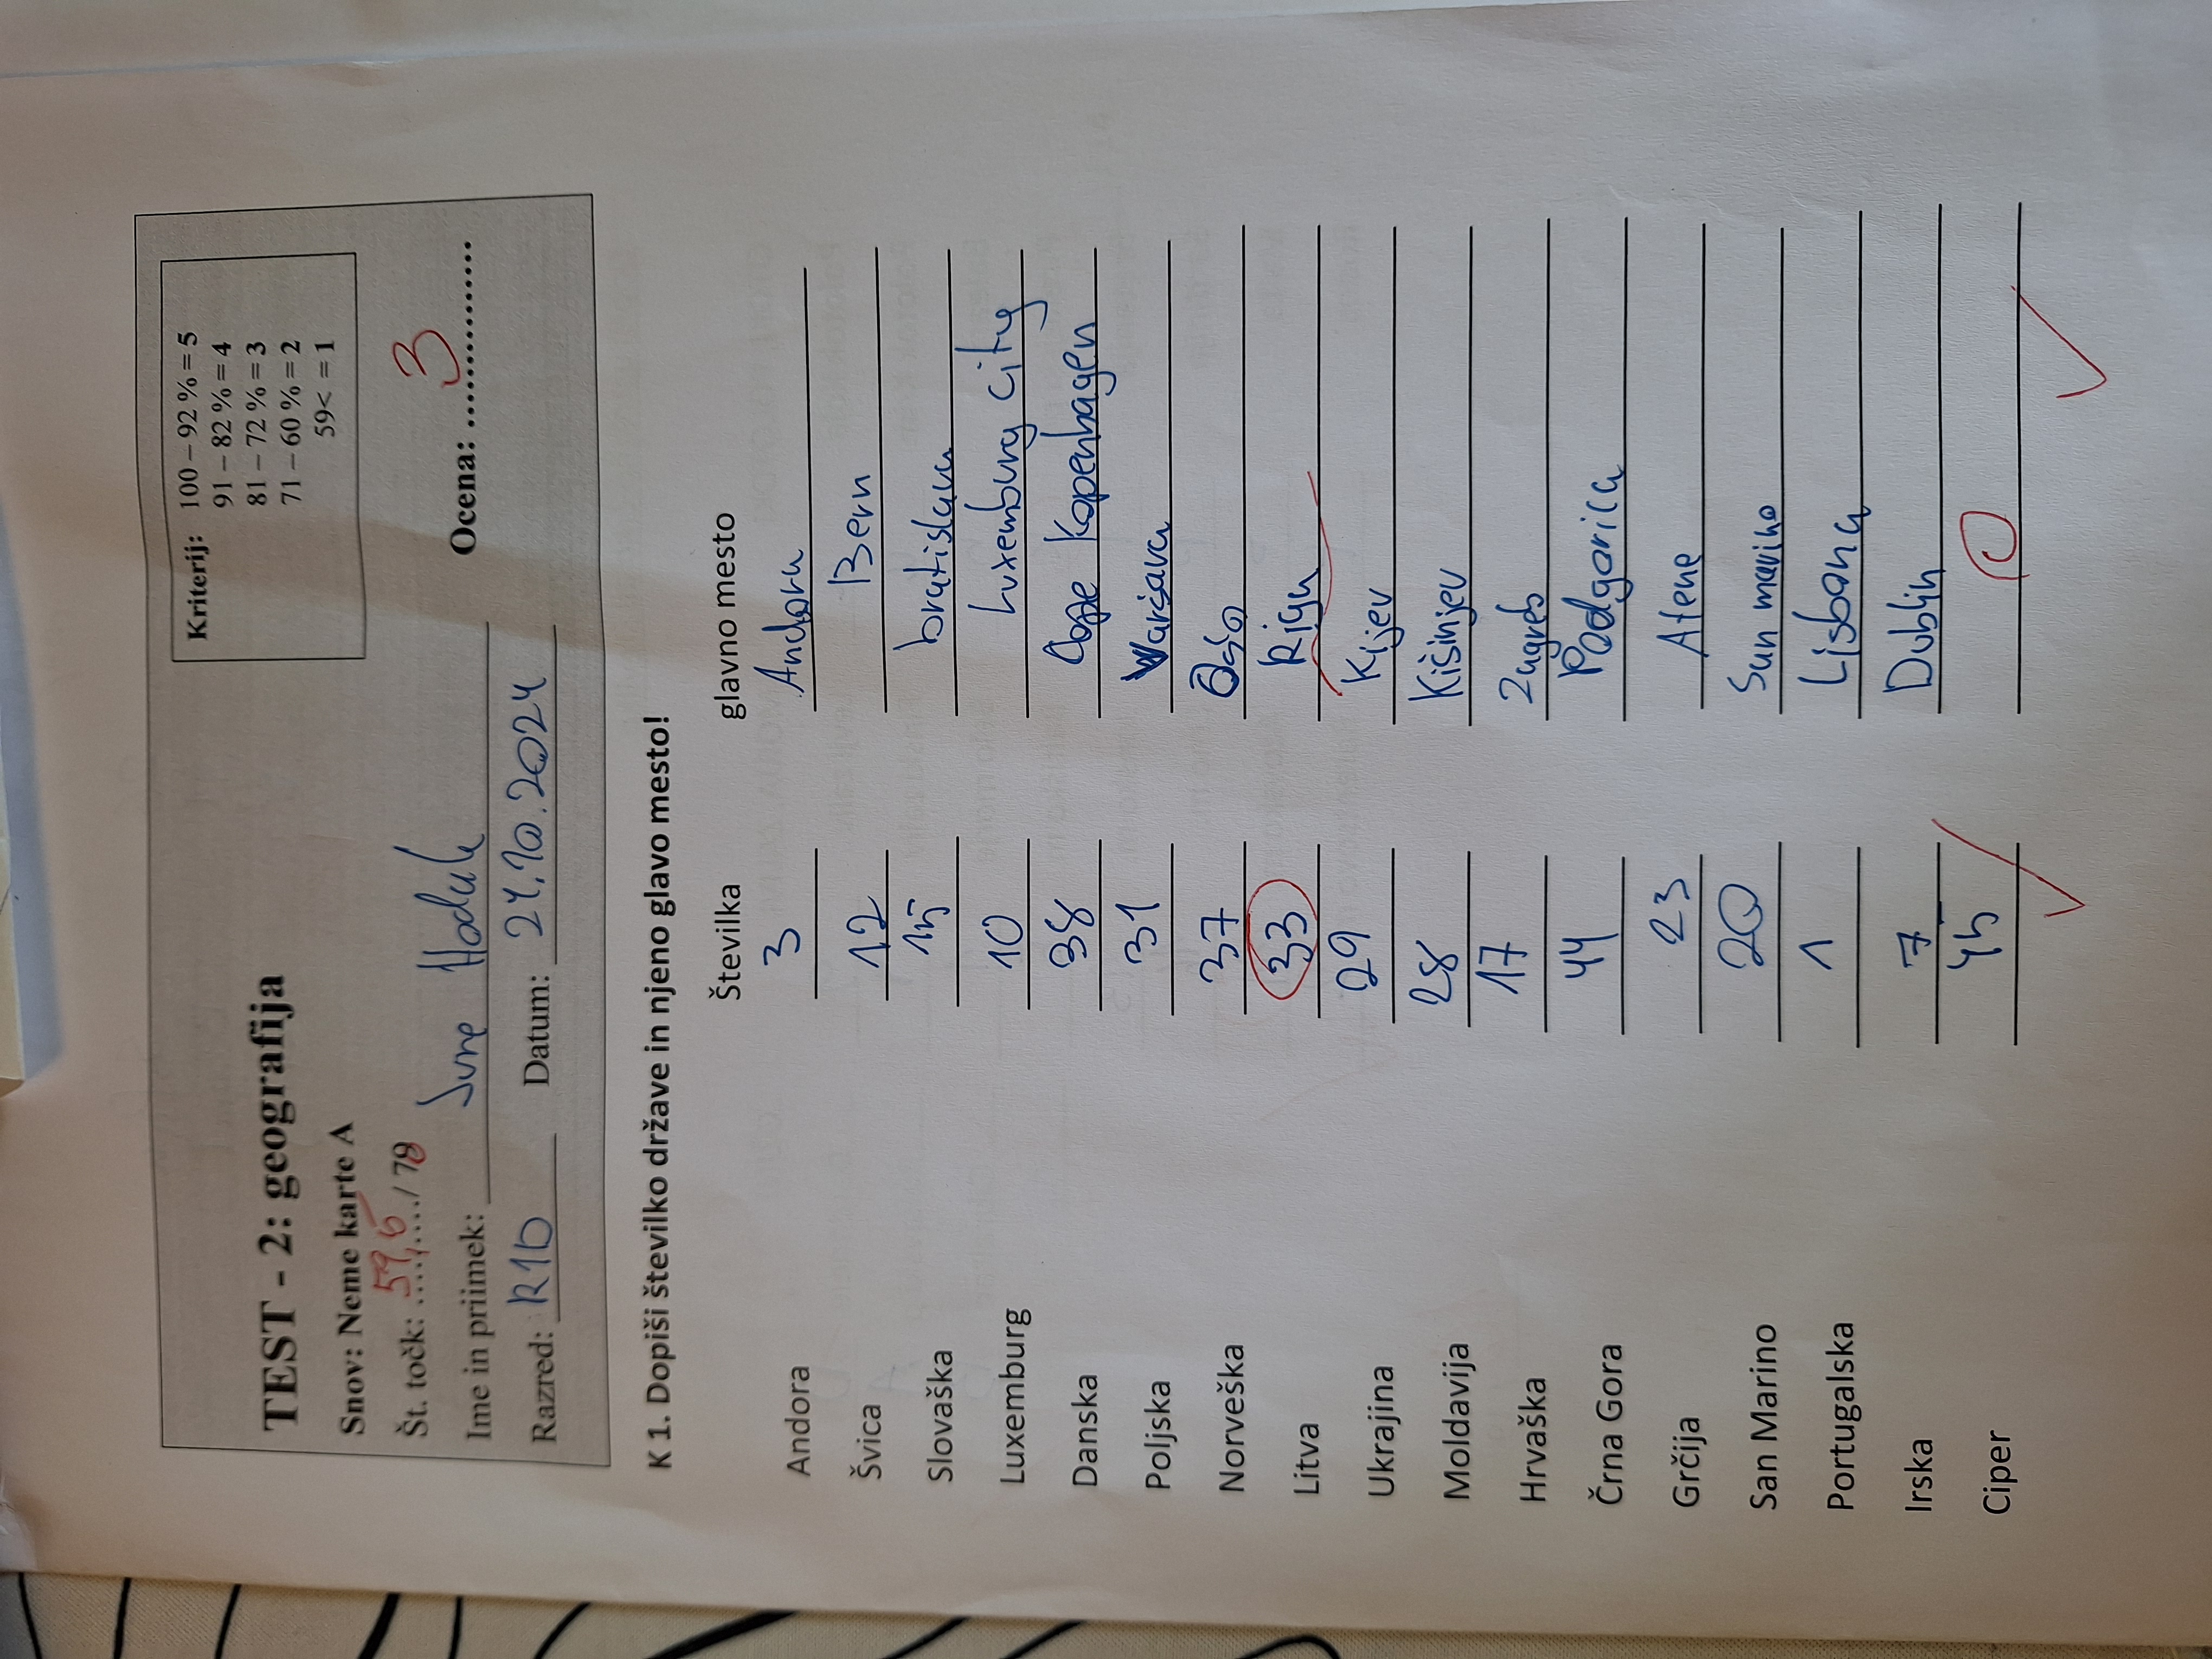 Kriterij: 100 – 92 % = 5
91 – 82 % = 4
81 – 72 % = 3
71 – 60 % = 2
59< = 1
TEST - 2: geografija
Snov: Neme karte A
Št. točk: 59,5 / 78
Ime in priimek: June Hodak
Ocena: 3
Razred: R1D Datum: 24.10.2024
K 1. Dopiši številko države in njeno glavo mesto!
Številka glavno mesto
Andora 3 Andora
Švica 12 Bern
Slovaška 15 bratislava
Luxemburg 10 Luxemburg city
Danska 38 Kopenhagen
Poljska 31 Waršava
Norveška 37
Litva 33 Riga
Ukrajina 29 Kijev
Moldavija 28 Kišinjev
Hrvaška 17 Zagreb
Črna Gora 44 Podgorica
Grčija 23 Atene
San Marino 20 San marino
Portugalska 1 Lisbona
Irska 7 Dublin
Ciper 45 0